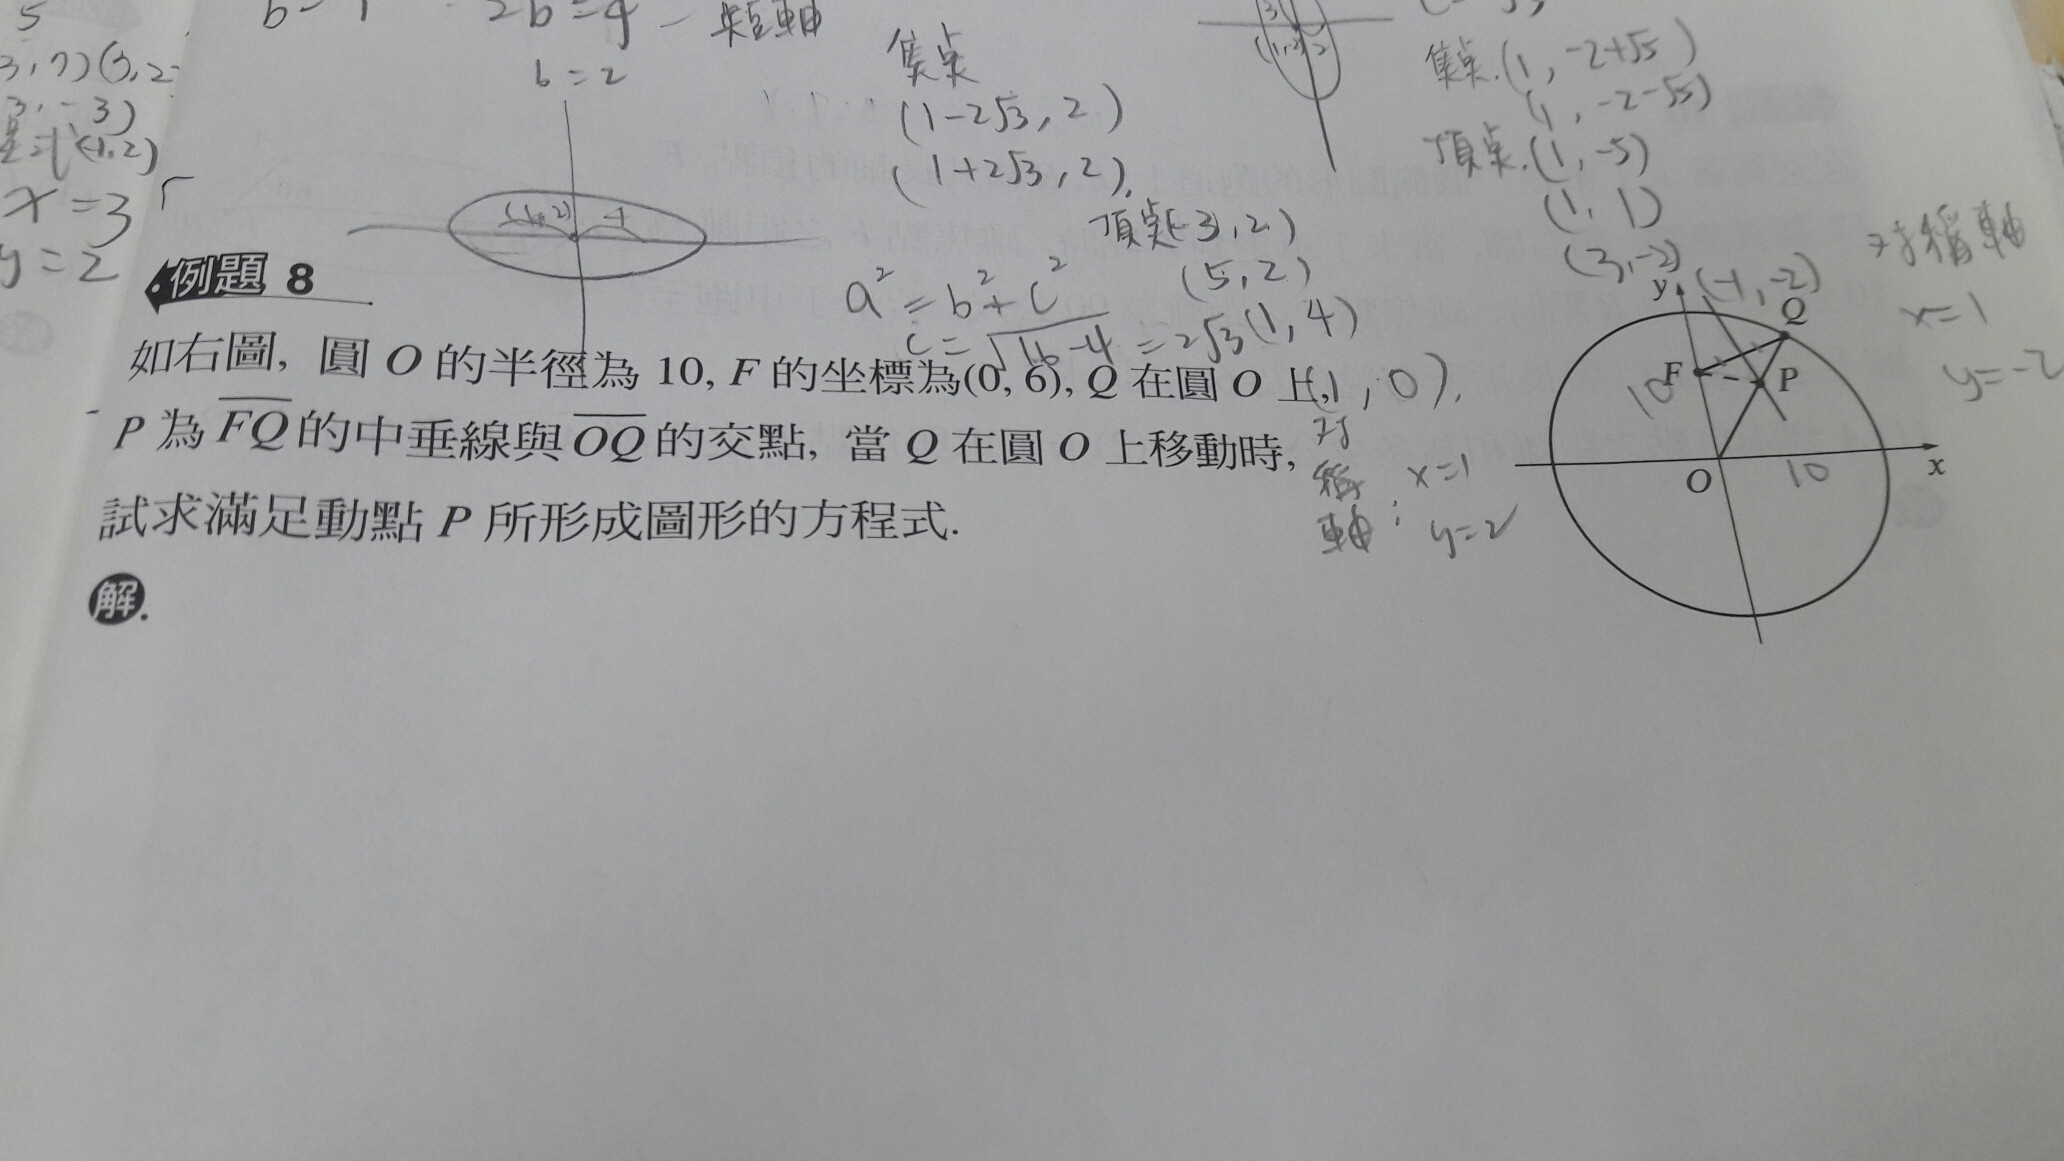 5
2b=4 — 短軸
b=2
3,7)(3,2
3,-3)
(-1,2)
x=3
y=2
焦点
(1-2√3, 2)
(1+2√3, 2),
頂点(-3,2)
(5,2)
(1,4)
(1,0),
a²=b²+c²
c=√16-4=2√3
对
稱
軸:
x=1
y=2
焦点.(1,-2+√5)
(1,-2-√5)
頂点.(1,-5)
(1,1)
(3,-2)
(-1,-2)
对稱軸
x=1
y=-2
例題 8
如右圖, 圓 O 的半徑為 10, F 的坐標為(0, 6), Q 在圓 O 上,
P 為 FQ 的中垂線與 OQ 的交點, 當 Q 在圓 O 上移動時,
試求滿足動點 P 所形成圖形的方程式.
解.
y
Q
F
P
10
O
10
x